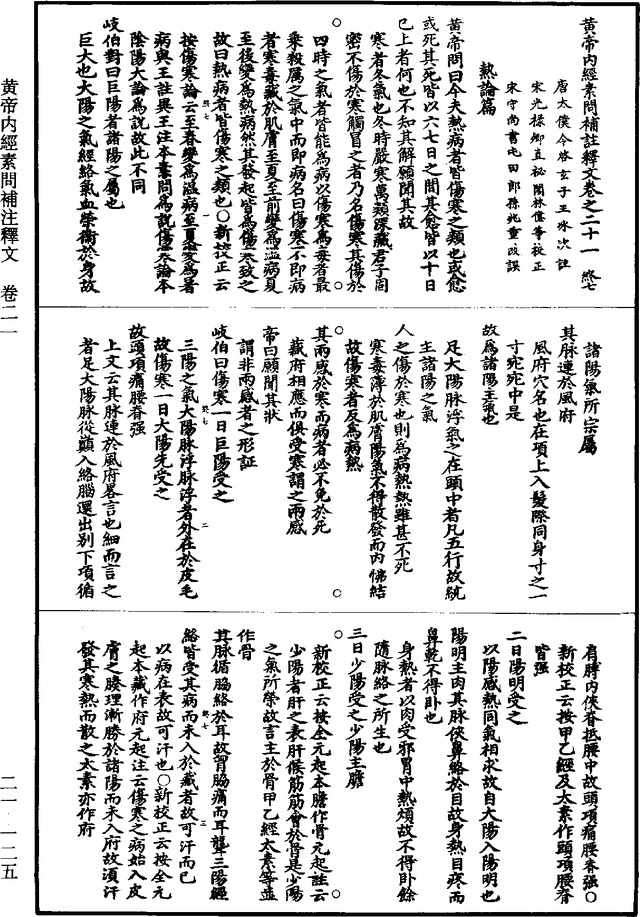 黄帝內經素問補註釋文卷之二十一　終七
唐太僕令啓玄子王冰次註
宋光祿卿直祕閣林億等校正
宋守尚書屯田郎孫兆重改誤
熱論篇
黄帝問曰今夫熱病者皆傷寒之類也或愈
或死其死皆以六七日之間其愈皆以十日
已上者何也不知其解願聞其故
寒者冬氣也冬時嚴寒萬類深藏君子固
密不傷於寒觸冒之者乃名傷寒其傷於
四時之氣者皆能爲病以傷寒爲毒者最
乘殺厲之氣中而即病名曰傷寒不即病
者寒毒藏於肌膚至夏至前變爲溫病夏
至後變爲熱病然其發起皆爲傷寒致之
故曰熱病者皆傷寒之類也○新校正云
按傷寒論云至春變爲溫病至夏變爲暑
病與王註異王注本素問爲說傷寒論本
陰陽大論爲說故此不同
岐伯對曰巨陽者諸陽之屬也
巨大也大陽之氣經絡氣血榮衛於身故
諸陽氣所宗屬
其脉連於風府
風府穴名也在項上入髮際同身寸之一
寸宛宛中是
故爲諸陽主氣也
足大陽脉浮氣之在頭中者凡五行故統
主諸陽之氣
人之傷於寒也則爲病熱熱雖甚不死
寒毒薄於肌膚陽氣不得散發而内怫結
故傷寒者反爲病熱
其兩感於寒而病者必不免於死
藏府相應而俱受寒謂之兩感
帝曰願聞其狀
謂非兩感者之形証
岐伯曰傷寒一日巨陽受之
三陽之氣大陽脉浮脉浮者外在於皮毛
故傷寒一日大陽先受之
故頭項痛腰脊强
上文云其脉連於風府畧言也細而言之
者足大陽脉從巔入絡腦還出别下項循
肩膊内俠脊抵腰中故頭項痛腰脊强○
新校正云按甲乙經及太素作頭項腰脊
皆强
二日陽明受之
以陽感熱同氣相求故自大陽入陽明也
陽明主肉其脉俠鼻絡於目故身熱目疼而
鼻乾不得卧也
身熱者以肉受邪胃中熱煩故不得卧餘
隨脉絡之所生也
三日少陽受之少陽主膽
新校正云按全元起本膽作骨元起註云
少陽者肝之表肝候筋筋會於骨是少陽
之氣所榮故言主於骨甲乙經太素等並
作骨
其脉循脇絡於耳故胷脇痛而耳聾三陽經
絡皆受其病而未入於藏者故可汗而已
以病在表故可汗也○新校正云按全元
起本藏作府元起注云傷寒之病始入皮
膚之腠理漸勝於諸陽而未入府故湏汗
發其寒熱而散之太素亦作府
黄帝内經素問補注釋文　卷二一
二一·一二五